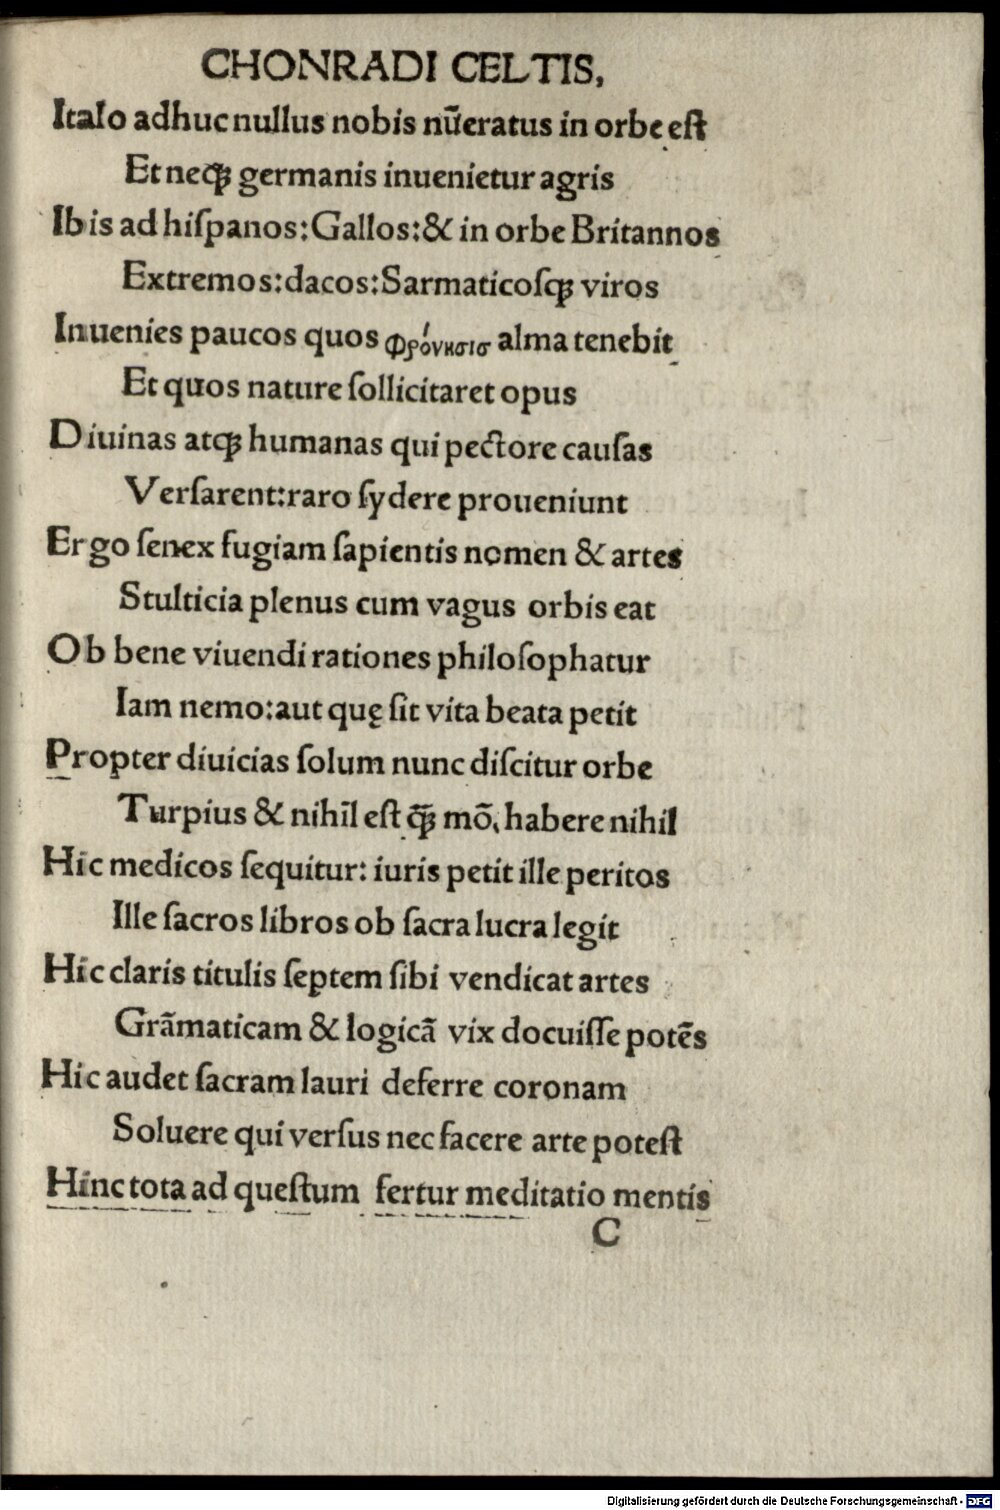 CHONRADI CELTIS,
Italo adhuc nullus nobis nūeratus in orbe eſt
Et neqꝫ germanis inuenietur agris
Ibis ad hiſpanos:Gallos:& in orbe Britannos
Extremos:dacos:Sarmaticoſqꝫ viros
Inuenies paucos quos φρόνησισ alma tenebit
Et quos nature ſollicitaret opus
Diuinas atqꝫ humanas qui pectore cauſas
Verſarent:raro ſydere proueniunt
Ergo ſenex fugiam ſapientis nomen & artes
Stulticia plenus cum vagus orbis eat
Ob bene viuendi rationes philoſophatur
Iam nemo:aut quę ſit vita beata petit
Propter diuicias ſolum nunc diſcitur orbe
Turpius & nihil̄ eſt qꝫ̄ mō, habere nihil
Hic medicos ſequitur: iuris petit ille peritos
Ille ſacros libros ob ſacra lucra legit
Hic claris titulis ſeptem ſibi vendicat artes
Grāmaticam & logicā vix docuiſſe potēs
Hic audet ſacram lauri deferre coronam
Soluere qui verſus nec facere arte poteſt
Hinc tota ad queſtum fertur meditatio mentis
C
Digitalisierung gefördert durch die Deutsche Forschungsgemeinschaft - DFG